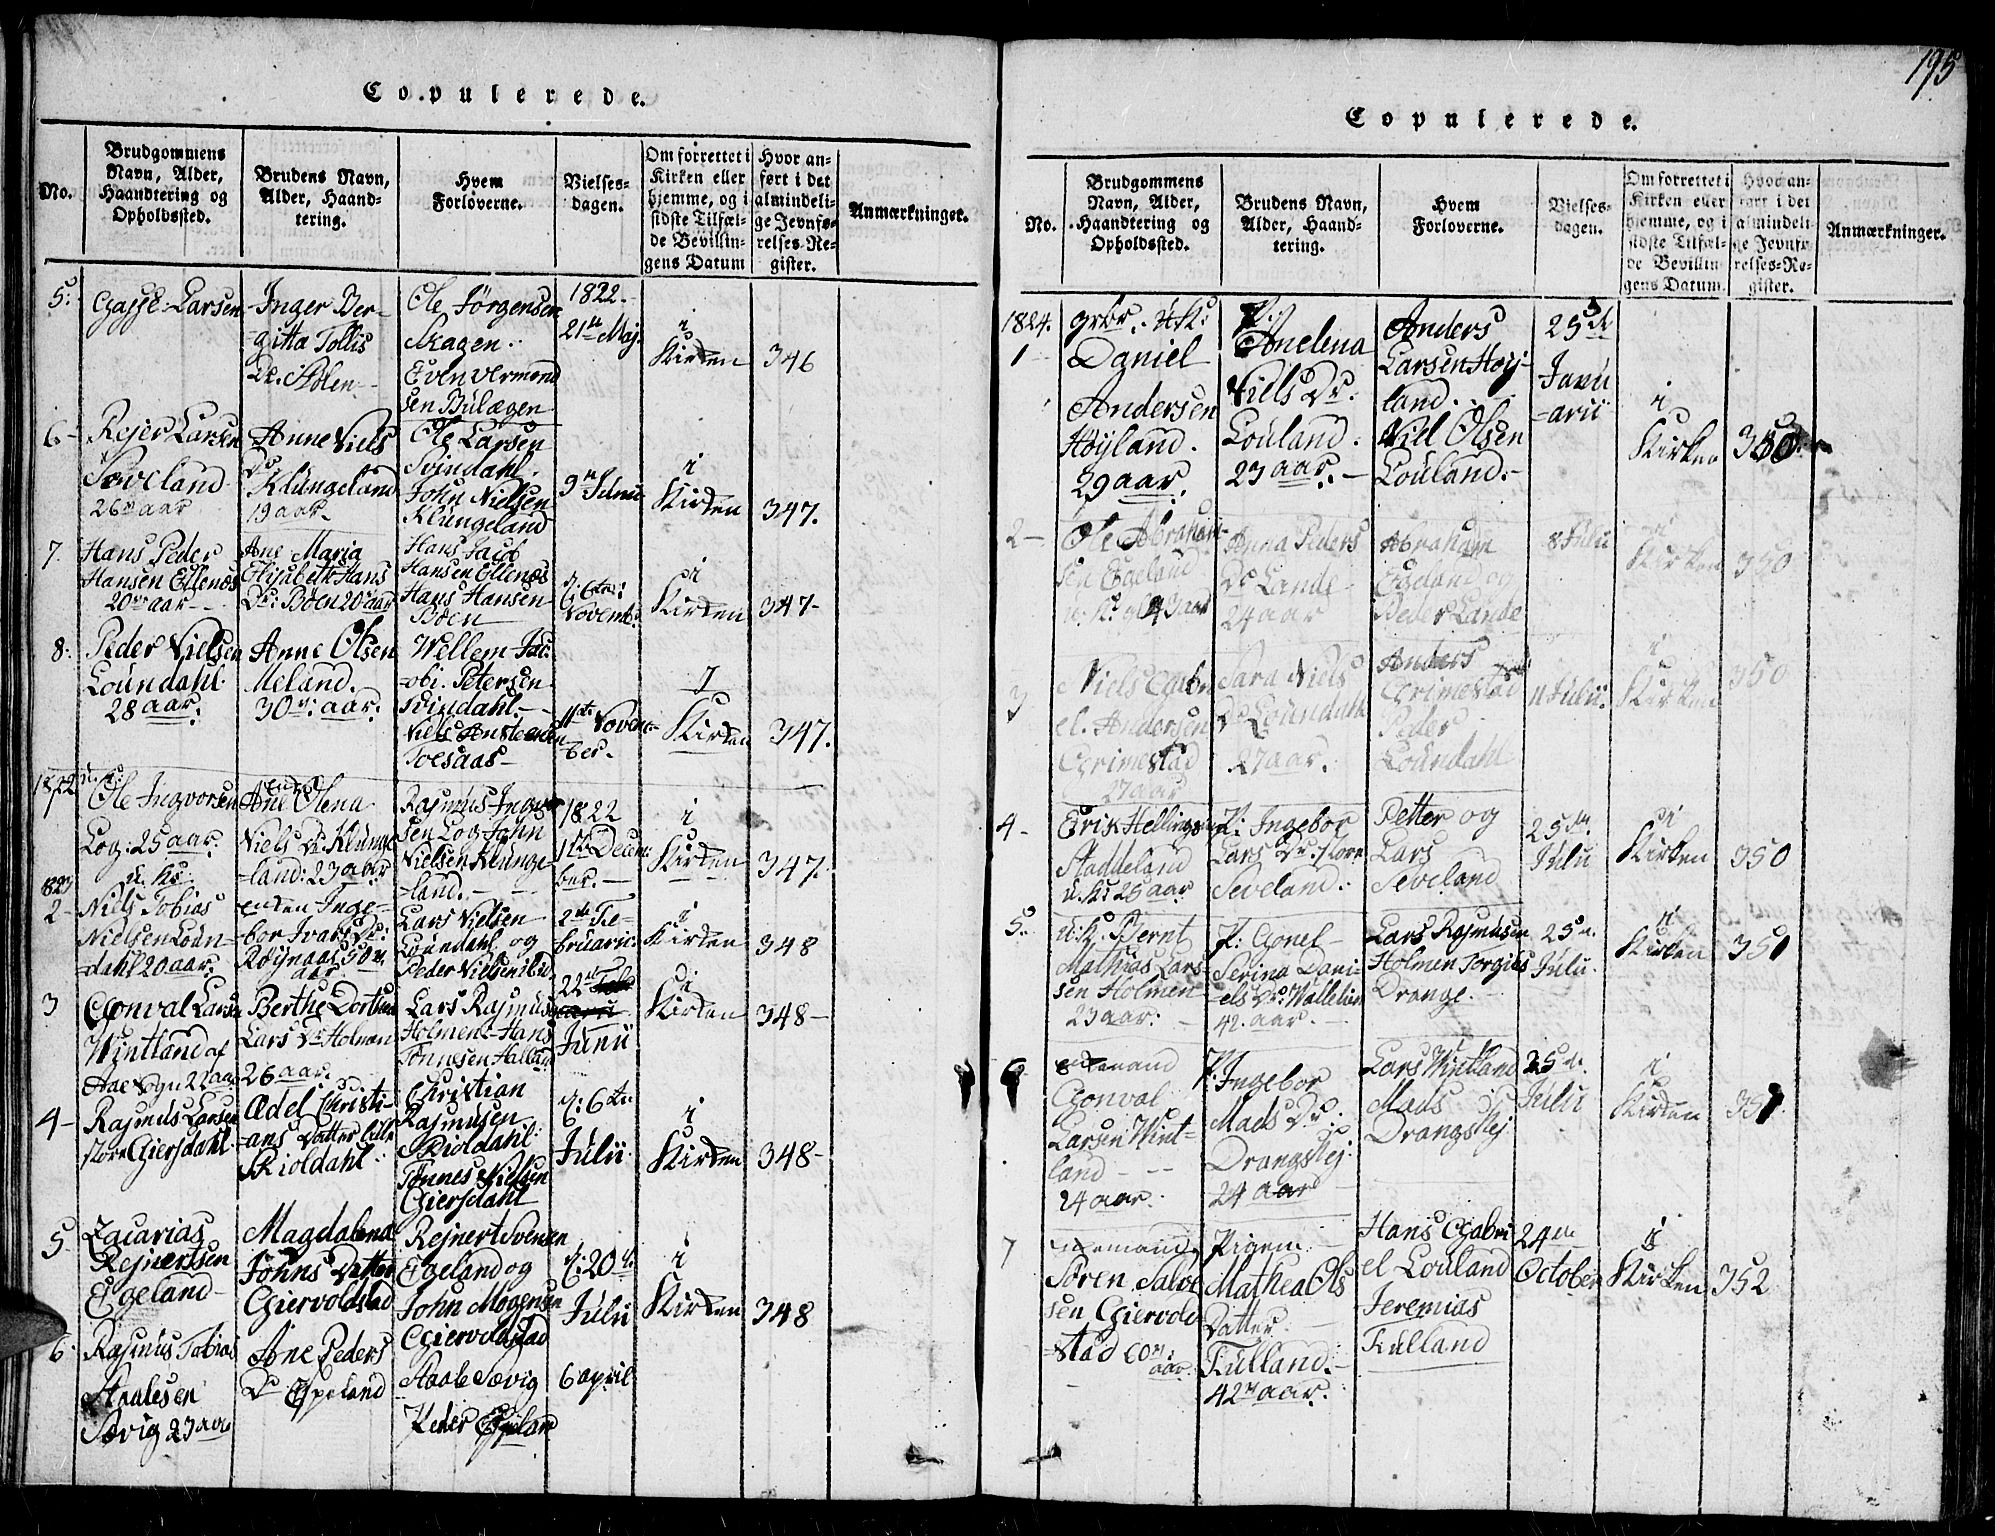 195
Copulerede.
No.
Brudgommens Navn, Alder, Haandtering og Opholdssted.
Brudens Navn, Alder, Haandtering.
Hvem Forloverne.
Vielsesdagen.
Om forrettet i Kirken eller hjemme, og i sidste Tilfælde Bevillingens Datum
Hvor anført i det almindelige Jevnførelses-Register.
Anmærkninger.
5.
Larsen
Inger Ber-
gitta Tollis
Dr.
Ole Jörgensen
Skagen
Even
sen
1822
21de Maj
i
Kirken
346
6
Rejer Larsen
26 aar
Anne Niels
Dr
Klungeland
19 aar
Ole Larsen
Svindahl.
John Nielsen
Klungeland
9de
i
Kirken
347.
7.
Hans Peder
Hansen Ellenæs
20 aar
Ane Maria
Elisabeth Hans
Dr: Böen 20 aar
Hans Jacob
Hansen Ellenæs
Hans Hansen
Böen
d: 6te
Novemb:
i
Kirken
347-
8.
Peder Nielsen
Loundahl
28 aar.
Anne Olsen
Meland.
30 aar.
Wellem Jac-
obi. Petersen
Svindahl.
Niels
11te Novem-
ber.
Kirken
347.
1822
1
Ole Ingvorsen
Log: 25 aar.
Ane Olena
Niels Dr. Klunge-
land: 23 aar
Rasmus Ingvor
sen Log John
Nielsen Klunge-
land.
1822
1te Decem
ber.
i
Kirken
347.
1823
2
Niels Tobias
Nielsen Loun-
dahl 20 aar.
enken Inge-
bor Ivars Dr:
50
aar
Lars Nielsen
Loundahl og
Peder Nielsen ibid
2de Fe-
bruarii
i
Kirken
348
3
Gonval Larsen
Wintland af
22 aar
Berthe
Lars Dr Holmen
26 aar.
Lars Rasmus
Holmen Hans
Tönnesen
22de
Junii
i
Kirken
348
4
Rasmus Larsen
store Giersdahl.
Ædel Christi-
ans Datter lille
Skioldahl
Christian
Rasmusen
Skioldahl.
Tönnes Nielsen
Giersdahl
d: 6te
Julii
i
Kirken
348
5
Zacarias
Rejnertsen
Egeland
Magdalena
Johns Datter
Giervoldstad
Rejnert Svensen
Egeland og
John Mogensen
Giervoldstad
d: 20de
Julii
i
Kirken
348
6.
Rasmus Tobias
Staalesen
Sævig 23 aar
Ane Peders
Dr Espeland
Staale Sævig
Peder Espeland
6 april
Copulerede.
No.
Brudgommens Navn, Alder, Haandtering og Opholdssted.
Brudens Navn, Alder, Haandtering.
Hvem Forloverne.
Vielsesdagen.
Om forrettet i Kirken eller hjemme, og i sidste Tilfælde Bevillingens Datum.
Hvor anført i det almindelige Jevnførelses-Register.
Anmærkninger.
1824.
1
Daniel
Andersen
Höyland.
29 aar.
P:
Anelena
Niels Dr.
Louland.
23 aar.
Anders
Larsen Höy-
land.
Niel Olsen
Louland.
25de
Janu
arii
i
Kirken
350
2
Ole Abraham-
sen Egeland
Anna Peders
Dr Lande
24 aar
Abraham
Egeland og
Peder Lande
8 Julii
i
Kirken
350
3
Niels
Andersen
Grimestad
27 aar
Sara Niels
Dr Loundahl
27 aar.
Anders
Grimestad
Peder
Loundahl
11 Julii.
i
Kirken
350
4
Erik Hellings
Staddeland
u. K: 26 aar
P: Ingebor
Lars Dr: store
Seveland.
Petter og
Lars
Seveland
25de
Julii
i
Kirken
350
5.
u: K. Bernt
Mathias Lars-
sen Holmen
23 aar:
P: Gonel
Serina Dani-
els Dr:
42. aar.
Lars Rasmusen
Holmen Torgius
Drange.
25de
Julii.
i
Kirken
351
6
enkemand
Gonval
Larsen Wint-
land
24 aar.
P: Ingebor
Mads Dr.
Drangshej
24 aar
Lars Wintland
Mads
Drangshej
25de
Julii
i
Kirken
351
7
enkemand
Sören Salve
sen Giervold-
stad 60
aar
Pigen
Mathea Ols
Datter
Fulland.
42 aar.
Hans Gabri
el Louland
Jeremias
Fulland
24de
October
i
Kirken
352